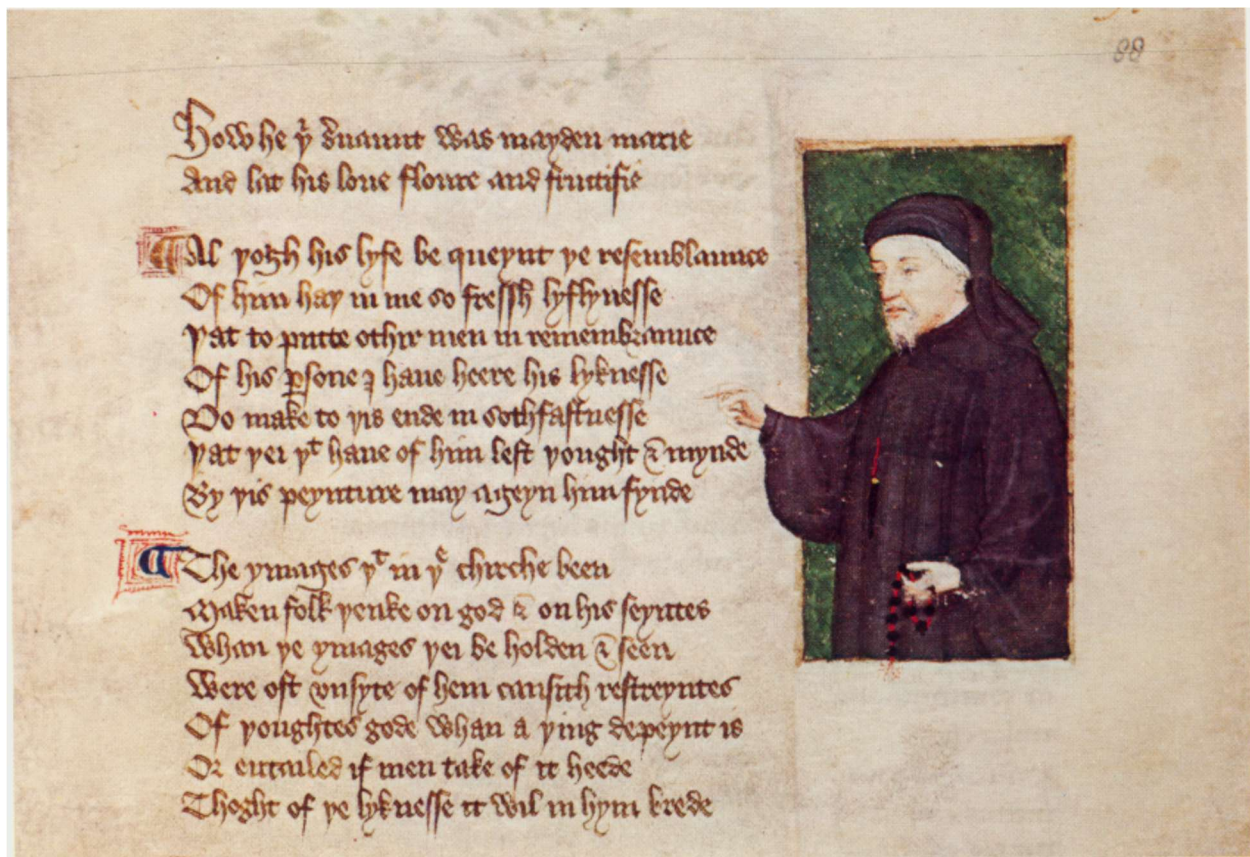 88
How he þͥ s̛uaunt was mayden marie
And lat his loue floure and fructifie
¶ Al þogh his lyfe be queynt þe resemblaunce
Of him haþ in me so fressh lyflynesse
Þat to putte othir men in remembraunce
Of his ꝑsone I haue heere his lyknesse
Do make to þis ende in sothfastnesse
Þat þei þͭ haue of him left þought & mynde
By þis peynture may ageyn him fynde
¶ The ymages þͭ in þͤ chirche been
Maken folk þenke on god & on his seyntes
Whan þe ymages þei be holden & seen
Were oft vnsyte of hem causith restreyntes
Of þoughtes gode whan a þing depeynt is
Or entailed if men take of it heede
Thoght of þe lyknesse it wil in hym brede